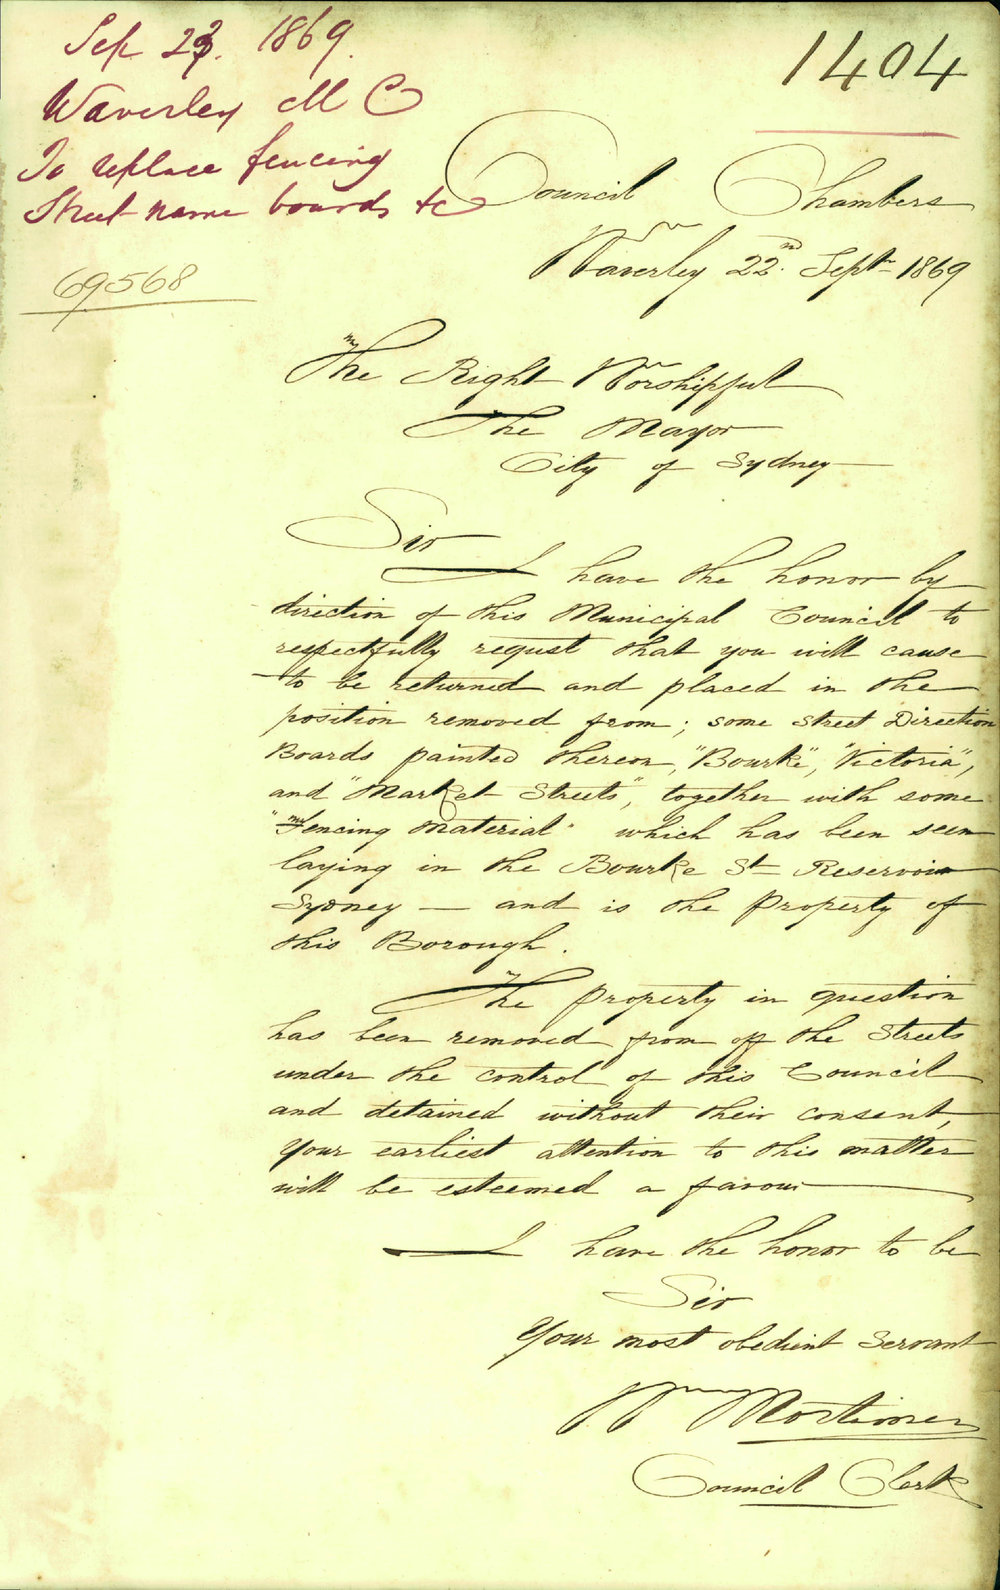 Sep 23. 1869.
Waverley M C
To replace fencing
Street name boards &c
69568
1404
Council Chambers
Waverley 22nd. Septr 1869
The Right Worshipful
The Mayor
City of Sydney
Sir
I have the honor by
direction of this Municipal Council to
respectfully request that you will cause
to be returned and placed in the
position removed from; some Street Direction
Boards painted thereon, "Bourke", "Victoria",
and "Market Streets", together with some
"Fencing Material" which has been seen
laying in the Bourke St Reservoir
Sydney — and is the Property of
this Borough.
The Property in question
has been removed from off the Streets
under the control of this Council
and detained without their consent,
Your earliest attention to this matter
will be esteemed a favour
I have the honor to be
Sir
Your most obedient Servant
Wm Mortimer
Council Clerk